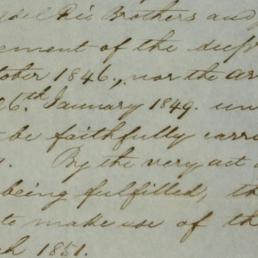 Brothers and
ement of the
tober 1846, nor the ar
26th January 1849. un
be faithfully carri
By the very act
being fulfilled, th
to make use of th
ch 1851.